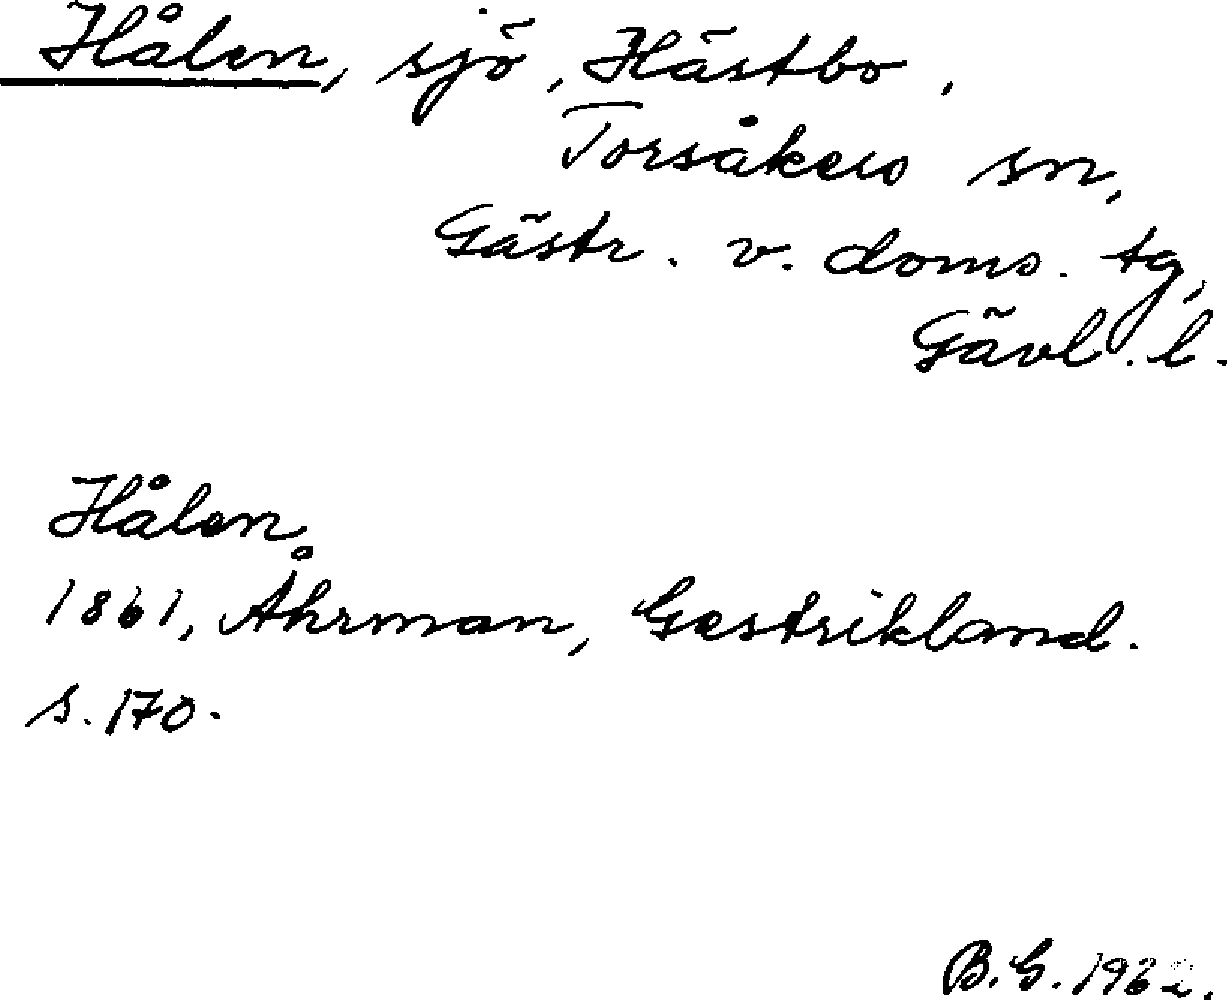 Hålen, sjö, Hästbo,
Torsåkers sn,
Gästr. v. doms. tg,
Gävl. l.
Hålen
1861, Åhrman, Gestrikland.
s. 170.
B.G.